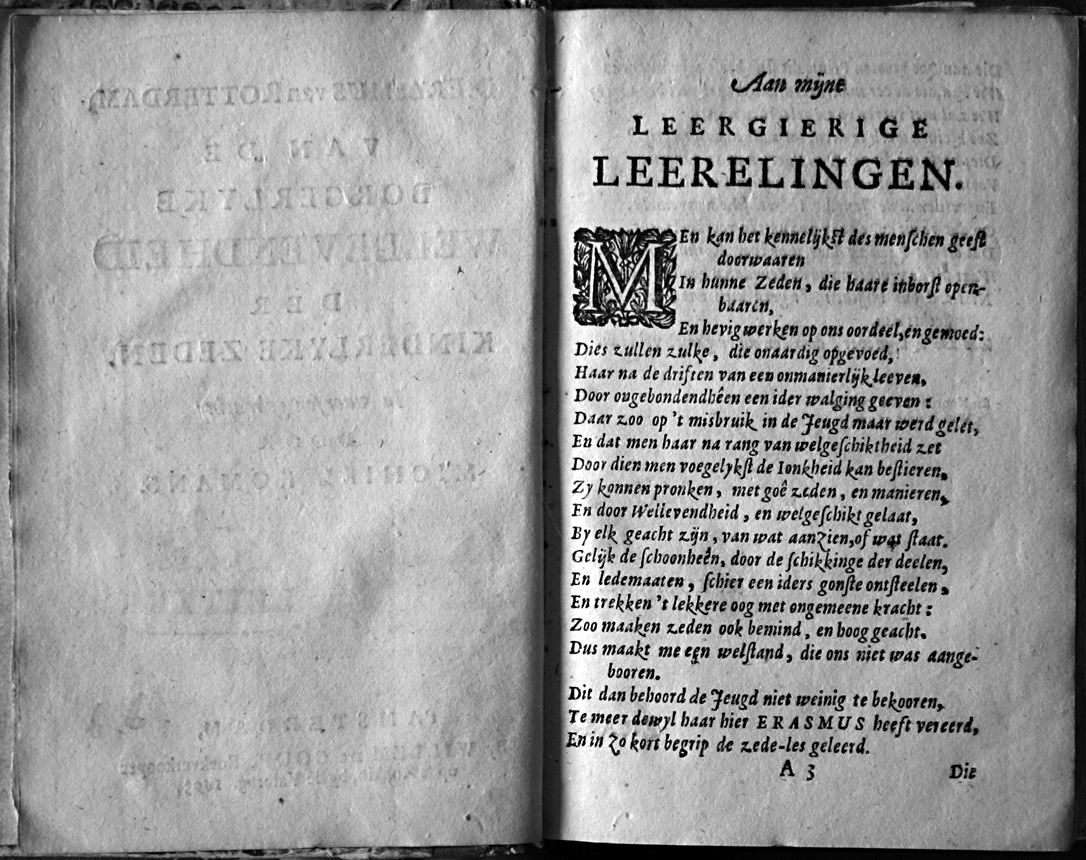 Aan mijne
LEERGIERIGE
LEERELINGEN.
MEn kan het kennelijkst des menschen geest
doorwaaren
In hunne Zeden, die haare inborst open-
baaren,
En hevig werken op ons oordeel, en gemoed:
Dies zullen zulke, die onaardig opgevoed,
Haar na de driften van een onmanierlijk leeven,
Door ongebondendhêen een ider walging geeven:
Daar zoo op 't misbruik in de Jeugd maar werd gelet,
En dat men haar na rang van welgeschiktheid zet
Door dien men voegelykst de Ionkheid kan bestieren,
Zy konnen pronken, met goê zeden, en manieren,
En door Wellevendheid, en welgeschikt gelaat,
By elk geacht zijn, van wat aanzien, of wat staat.
Gelijk de schoonheên, door de schikkinge der deelen,
En ledemaaten, schier een iders gonste ontsteelen,
En trekken 't lekkere oog met ongemeene kracht:
Zoo maaken zeden ook bemind, en hoog geacht.
Dus maakt me een welstand, die ons niet was aange-
booren.
Dit dan behoord de Jeugd niet weinig te bekooren,
Te meer dewyl haar hier ERASMUS heeft vereerd,
En in zo kort begrip de zede-les geleerd.
A 3 Die